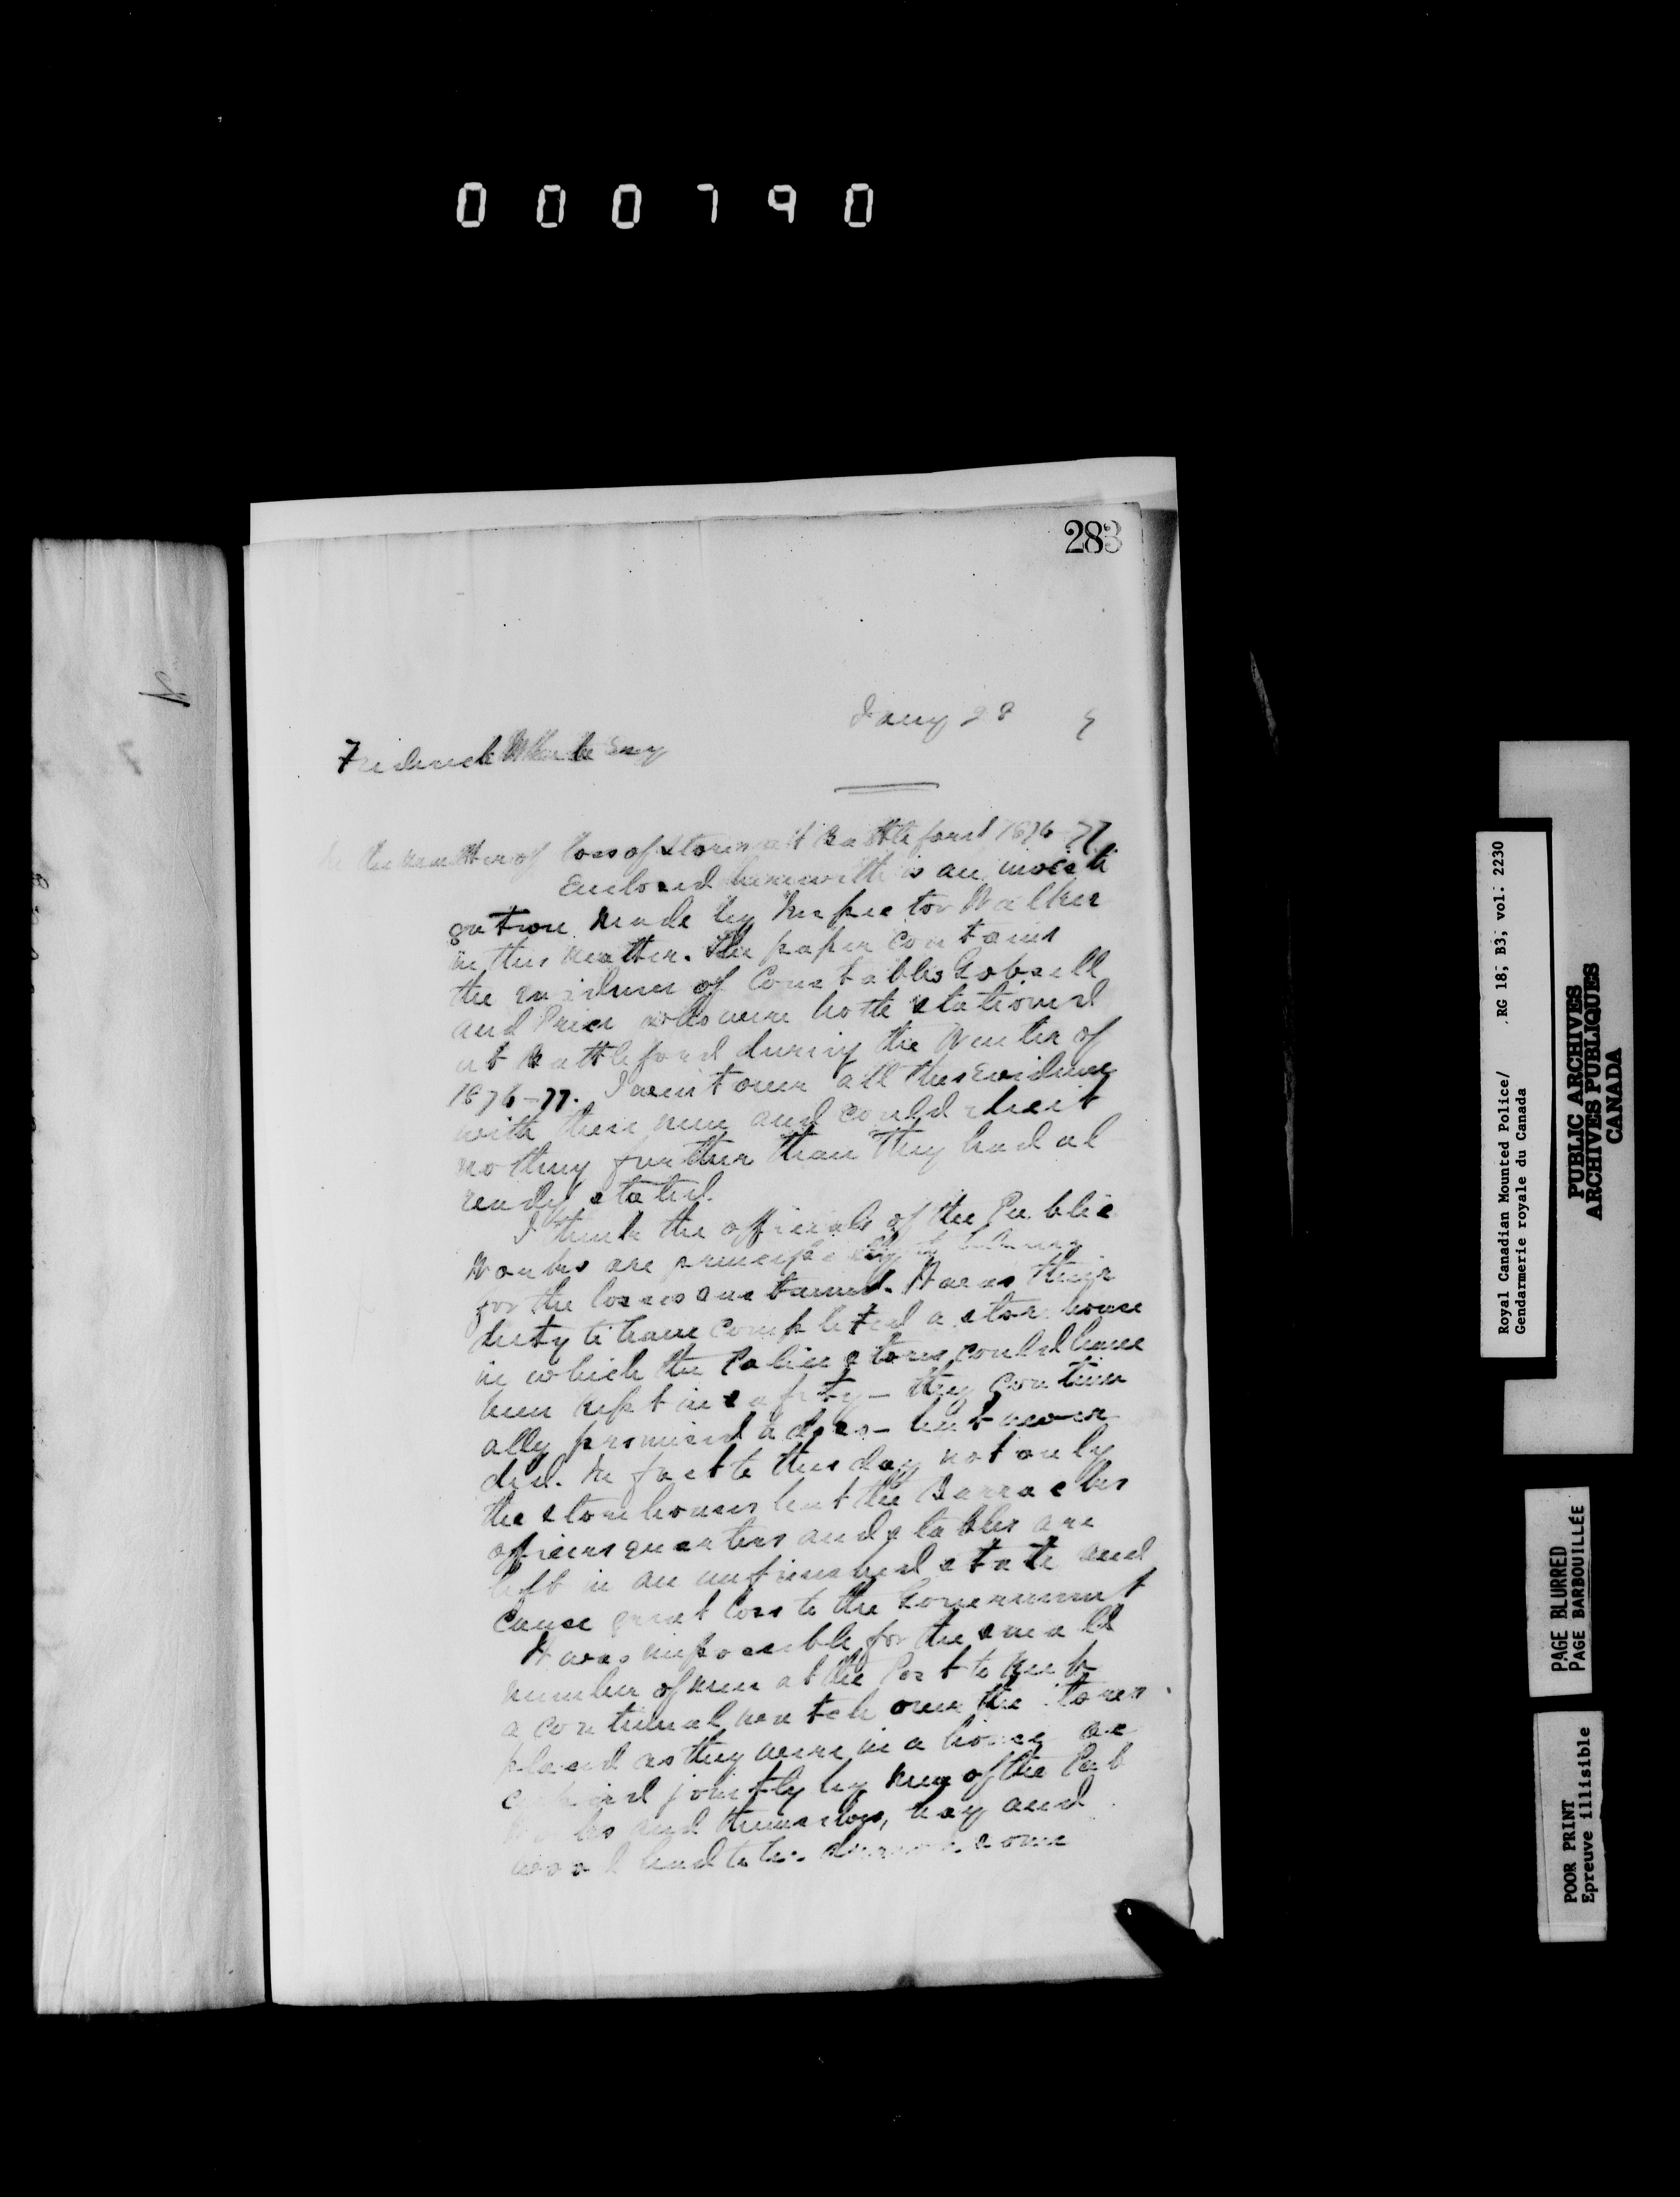 000790
283
Jany 28 9
Frederick White Esq
In the matter of loss of stores at Battleford 1876-77
Enclosed herewith is an investi
gation made by Inspector Walker
in this matter. The paper contains
the evidence of Constables Gobsell
and Price who were both stationed
at Battleford during the Winter of
1876-77. I went over all this evidence
with these men and could elicit
nothing further than they had al
ready stated.
I think the officials of the Public
Works are principally to blame
for the losses sustained. It was their
duty to have completed a store house
in which the Police stores could have
been kept in safety - they continu
ally promised to do so - but never
did. In fact to this day not only
the store houses but the Barracks
officers quarters and stables are
left in an unfinished state and
cause great loss to the Government
It was impossible for the small
number of men at the Post to keep
a continual watch over the stores
placed as they were in a house oc
cupied jointly by men of the Pub
Works and themselves, hay and
wood had to be drawn some
Royal Canadian Mounted Police/ RG 18, B3, vol. 2230
Gendarmerie royale du Canada
PUBLIC ARCHIVES
ARCHIVES PUBLIQUES
CANADA
PAGE BLURRED
PAGE BARBOUILLÉE
POOR PRINT
Epreuve illisible